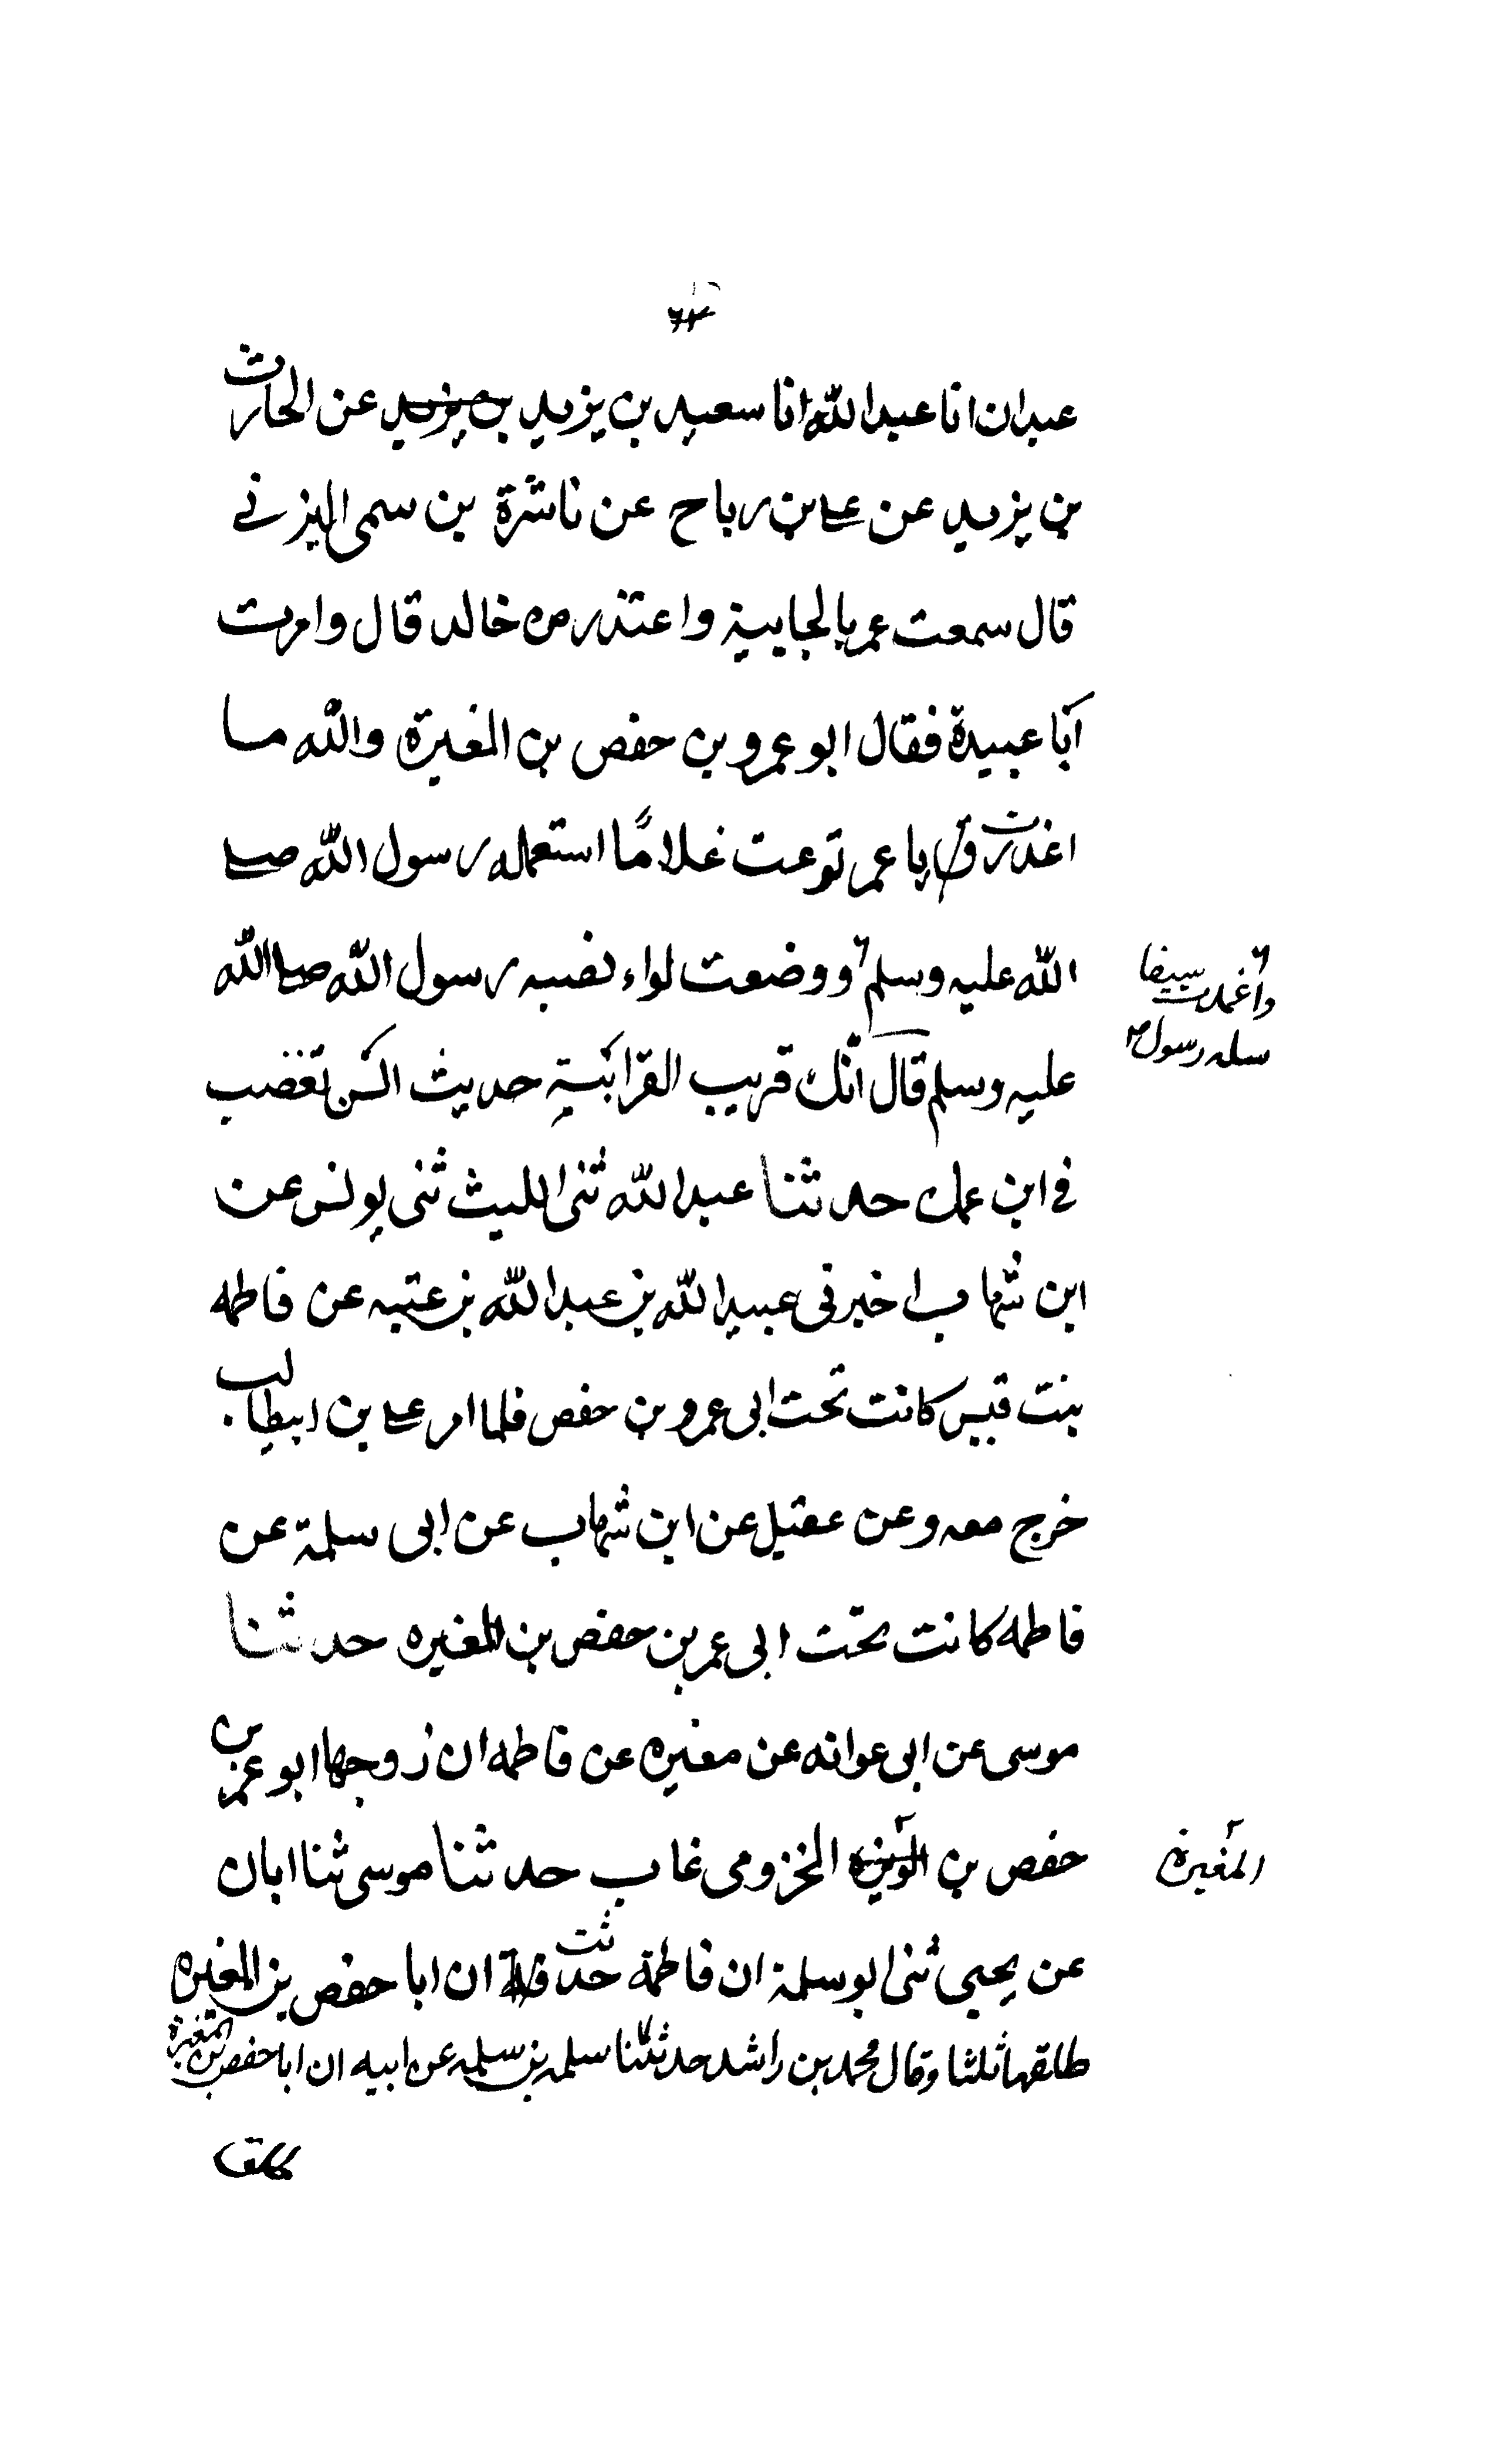 عبدان انا عبد الله انا سعيد بن يزيد بن يزيد عن الحارث
بن يزيد عن على بن رباح عن ناشرة بن سمى اليزنى
قال سمعت عمر بالجابية واعتذر من خالد قال وامرت
ابا عبيدة فقال ابو عمرو بن حفص بن المغيرة والله ما
اعذرت يا عمر نزعت غلاما استعمله رسول الله صلى
الله عليه وسلم ووضعت لواء نصبه رسول الله صلى الله
واغمدت سيفا
سله رسول
عليه وسلم قال انك قريب القرابة حديث السن تغضب
فى ابن عمك حدثنا عبد الله ثنى الليث ثنى يونس عن
ابن شهاب اخبرنى عبيد الله بن عبد الله بن عتبه عن فاطمه
بنت قيس كانت تحت ابى عمرو بن حفص فلما امر على بن ابيطالب
خرج معه وعن عقيل عن ابن شهاب عن ابى سلمة عن
فاطمه كانت تحت ابى عمر بن حفص بن المغيره حدثنا
موسى عن ابى عوانه عن مغيره عن فاطمه ان زوجها ابو عمر بن
حفص بن المخزومى غاب حدثنا موسى ثنا ابان
المغيره
عن يحيى ثنى ابو سلمة ان فاطمة حدثت ان ابا حفص بن المغيره
طلقها ثلثا وقال محمد بن راشد حدثنا سلمه بن سلمه عن ابيه ان ابا حفص بن المغيرة